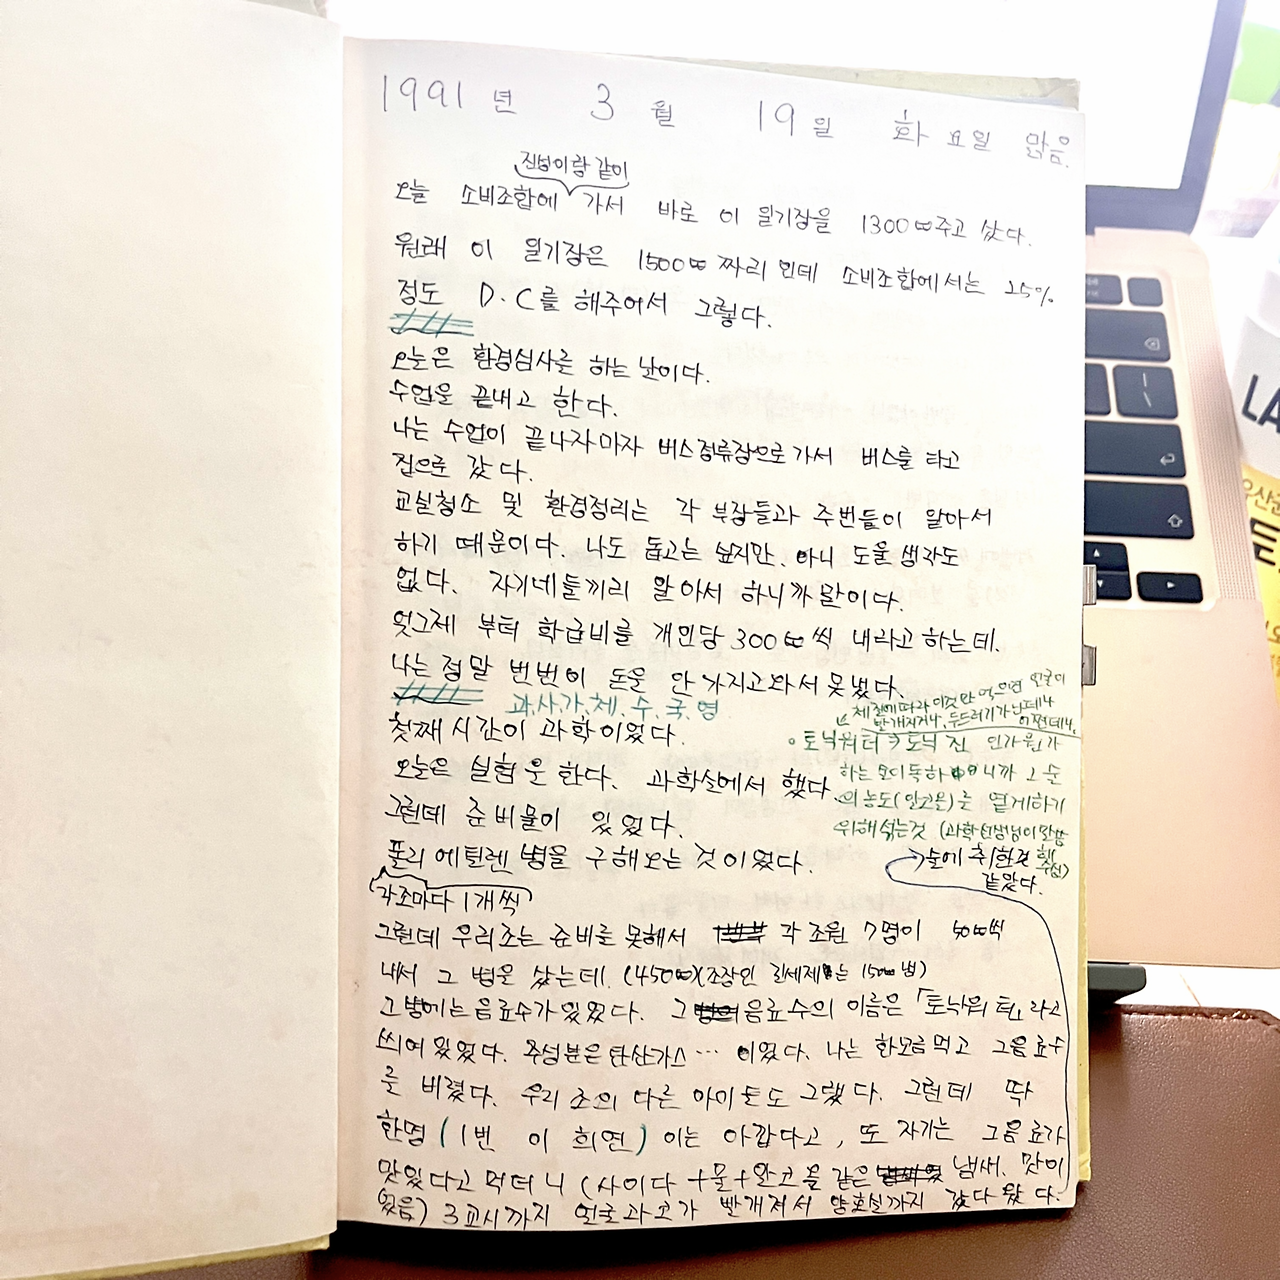 1991 년 3 월 19 일 화 요일 맑음.
진성이랑 같이
오늘 소비조합에 가서 바로 이 일기장을 1300₩주고 샀다.
원래 이 일기장은 1500₩ 짜리 인데 소비조합에서는 15%
정도 D.C를 해주어서 그렇다.
오늘은 환경심사를 하는 날이다.
수업을 끝내고 한다.
나는 수업이 끝나자마자 버스정류장으로 가서 버스를 타고
집으로 갔다.
교실청소 및 환경정리는 각 부장들과 주번들이 알아서
하기 때문이다. 나도 돕고는 싶지만. 아니 도울 생각도
없다. 자기네들끼리 알아서 하니까 말이다.
엊그제 부터 학급비를 개인당 300₩씩 내라고 하는데.
나는 정말 번번이 돈을 안 가지고 와서 못 냈다.
과.사.가.체.수.국.영
첫째 시간이 과학이었다.
오늘은 실험을 한다. 과학실에서 했다.
그런데 준비물이 있었다.
폴리 에틸렌 병을 구해오는 것이었다.
(각조마다 1개씩)
체질에 따라 이것만 먹으면 얼굴이
빨개지거나, 두드러기가 난데나
어쩐데나.
토닉워터 → 토닉 진 인가 원가
하는 오이 독하 니까 그 술
의 농도(알코올)를 옅게하기
위해 섞는것 (과학선생님이 말씀
했주심)
→술에 취한것
같았다.
그런데 우리조는 준비를 못해서 각 조원 7명이 50₩씩
내서 그 병을 샀는데. (450₩)(조장인 제는 150₩ 냄)
그 병에는 음료수가 있었다. 그 음료수의 이름은 「토닉워터」라고
씌어 있었다. 주성분은 탄산가스… 이었다. 나는 한모금 먹고 그음료수
를 버렸다. 우리 조의 다른 아이들도 그랬다. 그런데 딱
한명 (1번 이 희연) 이는 아깝다고, 또 자기는 그음료가
맛있다고 먹더니 (사이다+물+알코올 같은 냄새. 맛이
었음) 3교시까지 얼굴과 코가 빨개져서 양호실까지 갔다 왔다.